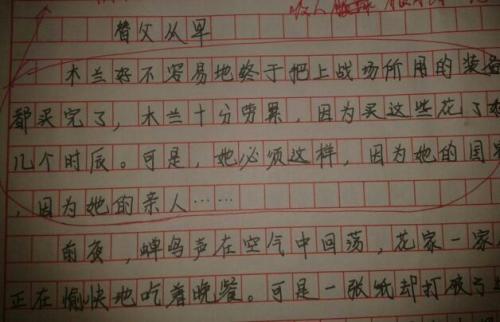 替父从军
木兰好不容易地终于把上战场所用的装备
都买完了，木兰十分劳累，因为买这些花了好
几个时辰。可是，她必须这样，因为她的国家
，因为她的亲人……
前夜，蝉鸣声在空气中回荡，花家一家
正在愉快地吃着晚餐。可是一张纸却打破了